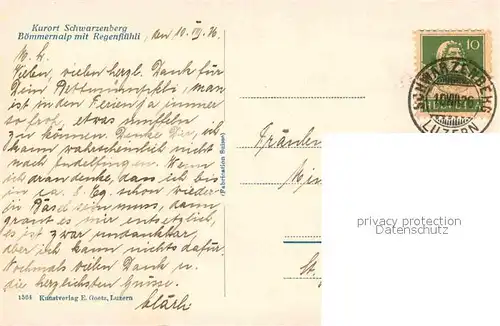 Kurort Schwarzenberg
Bömmernalp mit Regenflühli
den 10. VII. 26
M. L.
Vielen, vielen herzl. Dank für
Dein man
ist in den Ferien ja immer
so froh, etwas
zu können. Denke Dir, ich
kann wahrscheinlich nicht
nach Wenn
ich dran denke, dass ich bis
in ca. 8. Tg. schon wieder
in muss, dann
graust es mir entsetzlich,
es ist zwar undankbar,
aber ich kann nichts dafür.
Nochmals vielen Dank u.
die herzlichsten Grüsse.
Kunstverlag E. Goetz, Luzern
Klärli
(Fabrication Suisse)
10
SCHWARZENBERG
LUZERN
Fräulein
St.
privacy protection
Datenschutz